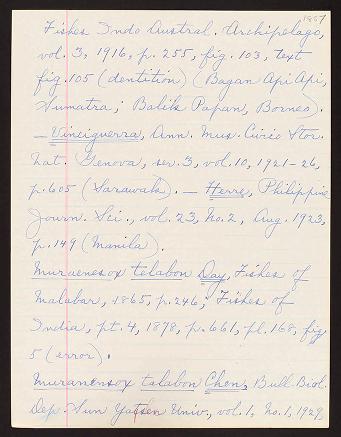 1857
Fishes Indo Austral. Archipelago,
vol. 3, 1916, p. 255, fig. 103, text
fig. 105 (dentition) (Bagan Api Api,
Sumatra; Balik Papan, Borneo).
— Vinciguerra, Ann. Mus. Civic Stor.
Nat. Genova, ser. 3, vol. 10, 1921-26,
p. 605 (Sarawak). — Herre, Philippine
Journ. Sci., vol. 23, No. 2, Aug. 1923,
p. 149 (Manila).
Muraenesox telabon Day, Fishes of
Malabar, 1865, p. 246; Fishes of
India, pt. 4, 1878, p. 661, pl. 168, fig
5 (error).
Muranensox talabon Chen, Bull Biol.
Dep. Sun Yatsen Univ., vol. 1, No. 1, 1929,